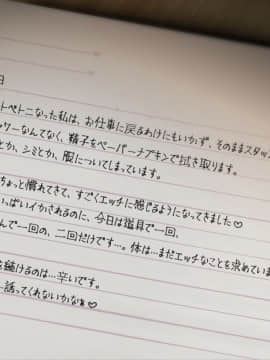 日
トベトニなった私は、お仕事に戻るわけにもいかず、そのままスタッ
ワーなんてなく、精子をペーパーナプキンで拭き取ります。
とか、シミとか、服についてしまっています。
ちょっと慣れてきて、すごくエッチに感じるようになってきました♡
いっぱいイかされるのに、今日は道具で一回、
んで一回の、二回だけです…。体は…まだエッチなことを求めていま
を続けるのは…辛いです。
誘ってくれないかなぁ♡